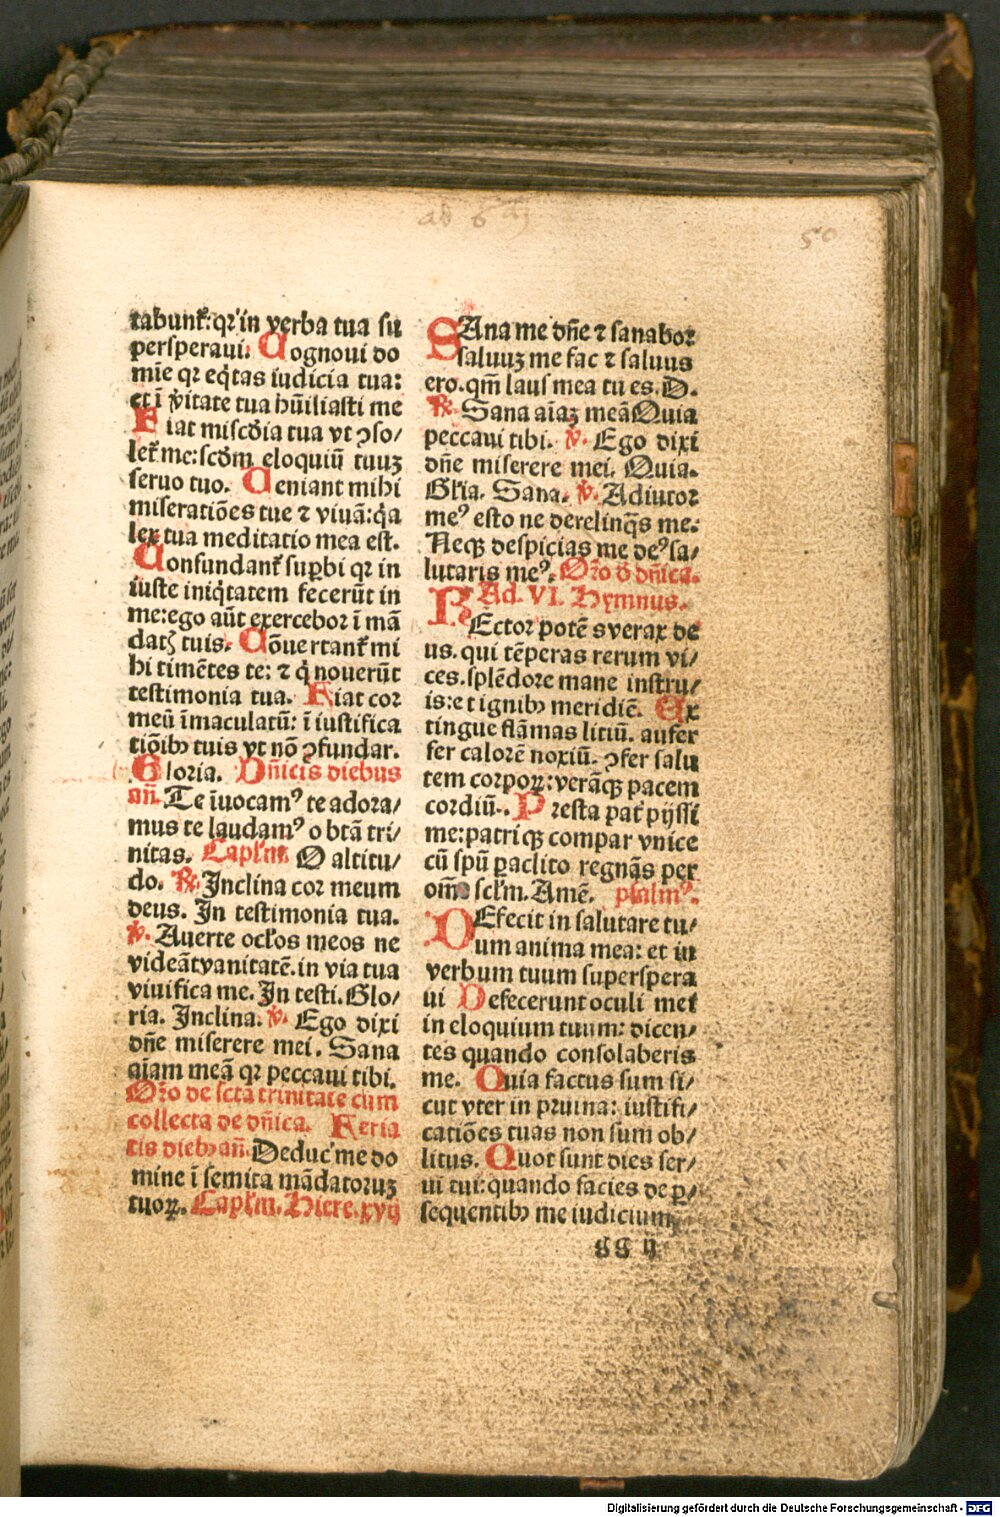 ad 6 aȝ
50
tabunt᷑: qꝛ in verba tua su
persperaui. Cognoui do
mīe qꝛ eq̄tas iudicia tua:
et ī v̓itate tua hūiliasti me
Fiat misc̄dia tua vt ꝯso/
let᷑ me: scd̄m eloquiū tuuȝ
seruo tuo. Ueniant mihi
miseratiōes tue ⁊ viuā: q̄a
lex tua meditatio mea est.
Confundant᷑ suꝑbi qꝛ in
iuste iniq̄tatem fecerūt in
me: ego aūt exercebor ī mā
datꝫ tuis. Cōuertant᷑ mi
hi timētes te: ⁊ q̄ nouerūt
testimonia tua. Fiat cor
meū īmaculatū: ī iustifica
tiōibꝫ tuis vt nō ꝯfundar.
Gloria. Dn̄icis diebus
an̄. Te īuocamꝰ te adora/
mus te laudamꝰ o btā tri/
nitas. Capl̓m O altitu/
do. ℟. Inclina cor meum
deus. In testimonia tua.
℣. Auerte ocl̓os meos ne
videāt vanitatē. in via tua
viuifica me. In testi. Glo/
ria. Inclina. ℣. Ego dixi
dn̄e miserere mei. Sana
aīam meā qꝛ peccaui tibi.
Oꝛ̄o de sctā trinitate cum
collecta de dn̄ica. Feria
tis diebꝫ an̄. Deduc̓ me do
mine ī semita mādatoruȝ
tuoꝝ. Capl̓m. Hiere. xvij
SAna me dn̄e ⁊ sanabor
saluuȝ me fac ⁊ saluus
ero. qm̄ laus mea tu es. D.
℟. Sana aīaȝ meā Quia
peccaui tibi. ℣. Ego dixi
dn̄e miserere mei. Quia.
Gl̓ia. Sana. ℣. Adiutor
meꝰ esto ne derelinq̄s me:
Neqꝫ despicias me deꝰ sa/
lutaris meꝰ. Oꝛ̄o ō dn̄ica.
Ad. VI. Hymnus.
REctor potē s verax de
us. qui tēperas rerum vi/
ces. splēdore mane instru/
is: et ignibꝫ meridiē. Ex
tingue flāmas litiū. aufer
fer calorē noxiū. ꝯfer salu
tem corpoꝝ: verāqꝫ pacem
cordiū. Presta pat̓ pijssi
me: patriqꝫ compar vnice
cū spū ꝑaclito regnās per
om̄e scl̓m. Amē. psalmꝰ.
DEfecit in salutare tu/
um anima mea: et in
verbum tuum superspera
ui Defecerunt oculi mei
in eloquium tuum: dicen/
tes quando consolaberis
me. Quia factus sum si/
cut vter in pruina: iustifi/
catiōes tuas non sum ob/
litus. Quot sunt dies ser/
ui tui: quando facies de ꝑ/
sequentibꝫ me iudicium
gg ij
Digitalisierung gefördert durch die Deutsche Forschungsgemeinschaft - DFG